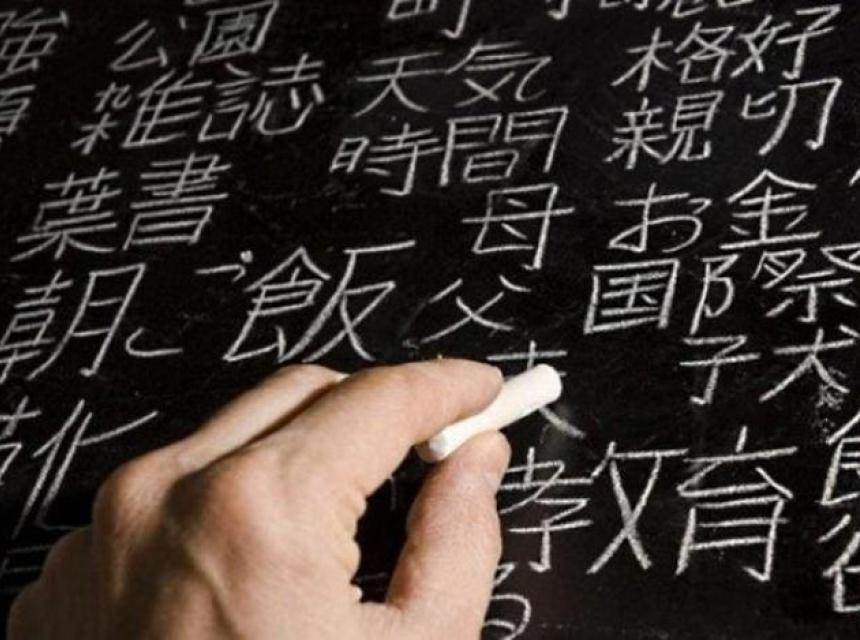 強 公園 町 格好
雑誌 天気 親切
葉書 時間
母 お金
朝ご飯 父 国際
子犬
靴 教育